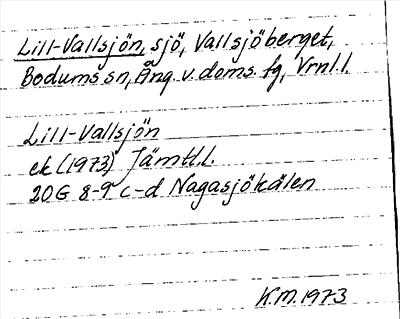 Lill-Vallsjön, sjö, Vallsjöberget,
Bodums sn, Ång. v. doms. fg, Vrnl. l.
Lill-Vallsjön
ek (1973) Jämtl. l.
20G 8-9 c-d Nagasjökälen
K.M. 1973